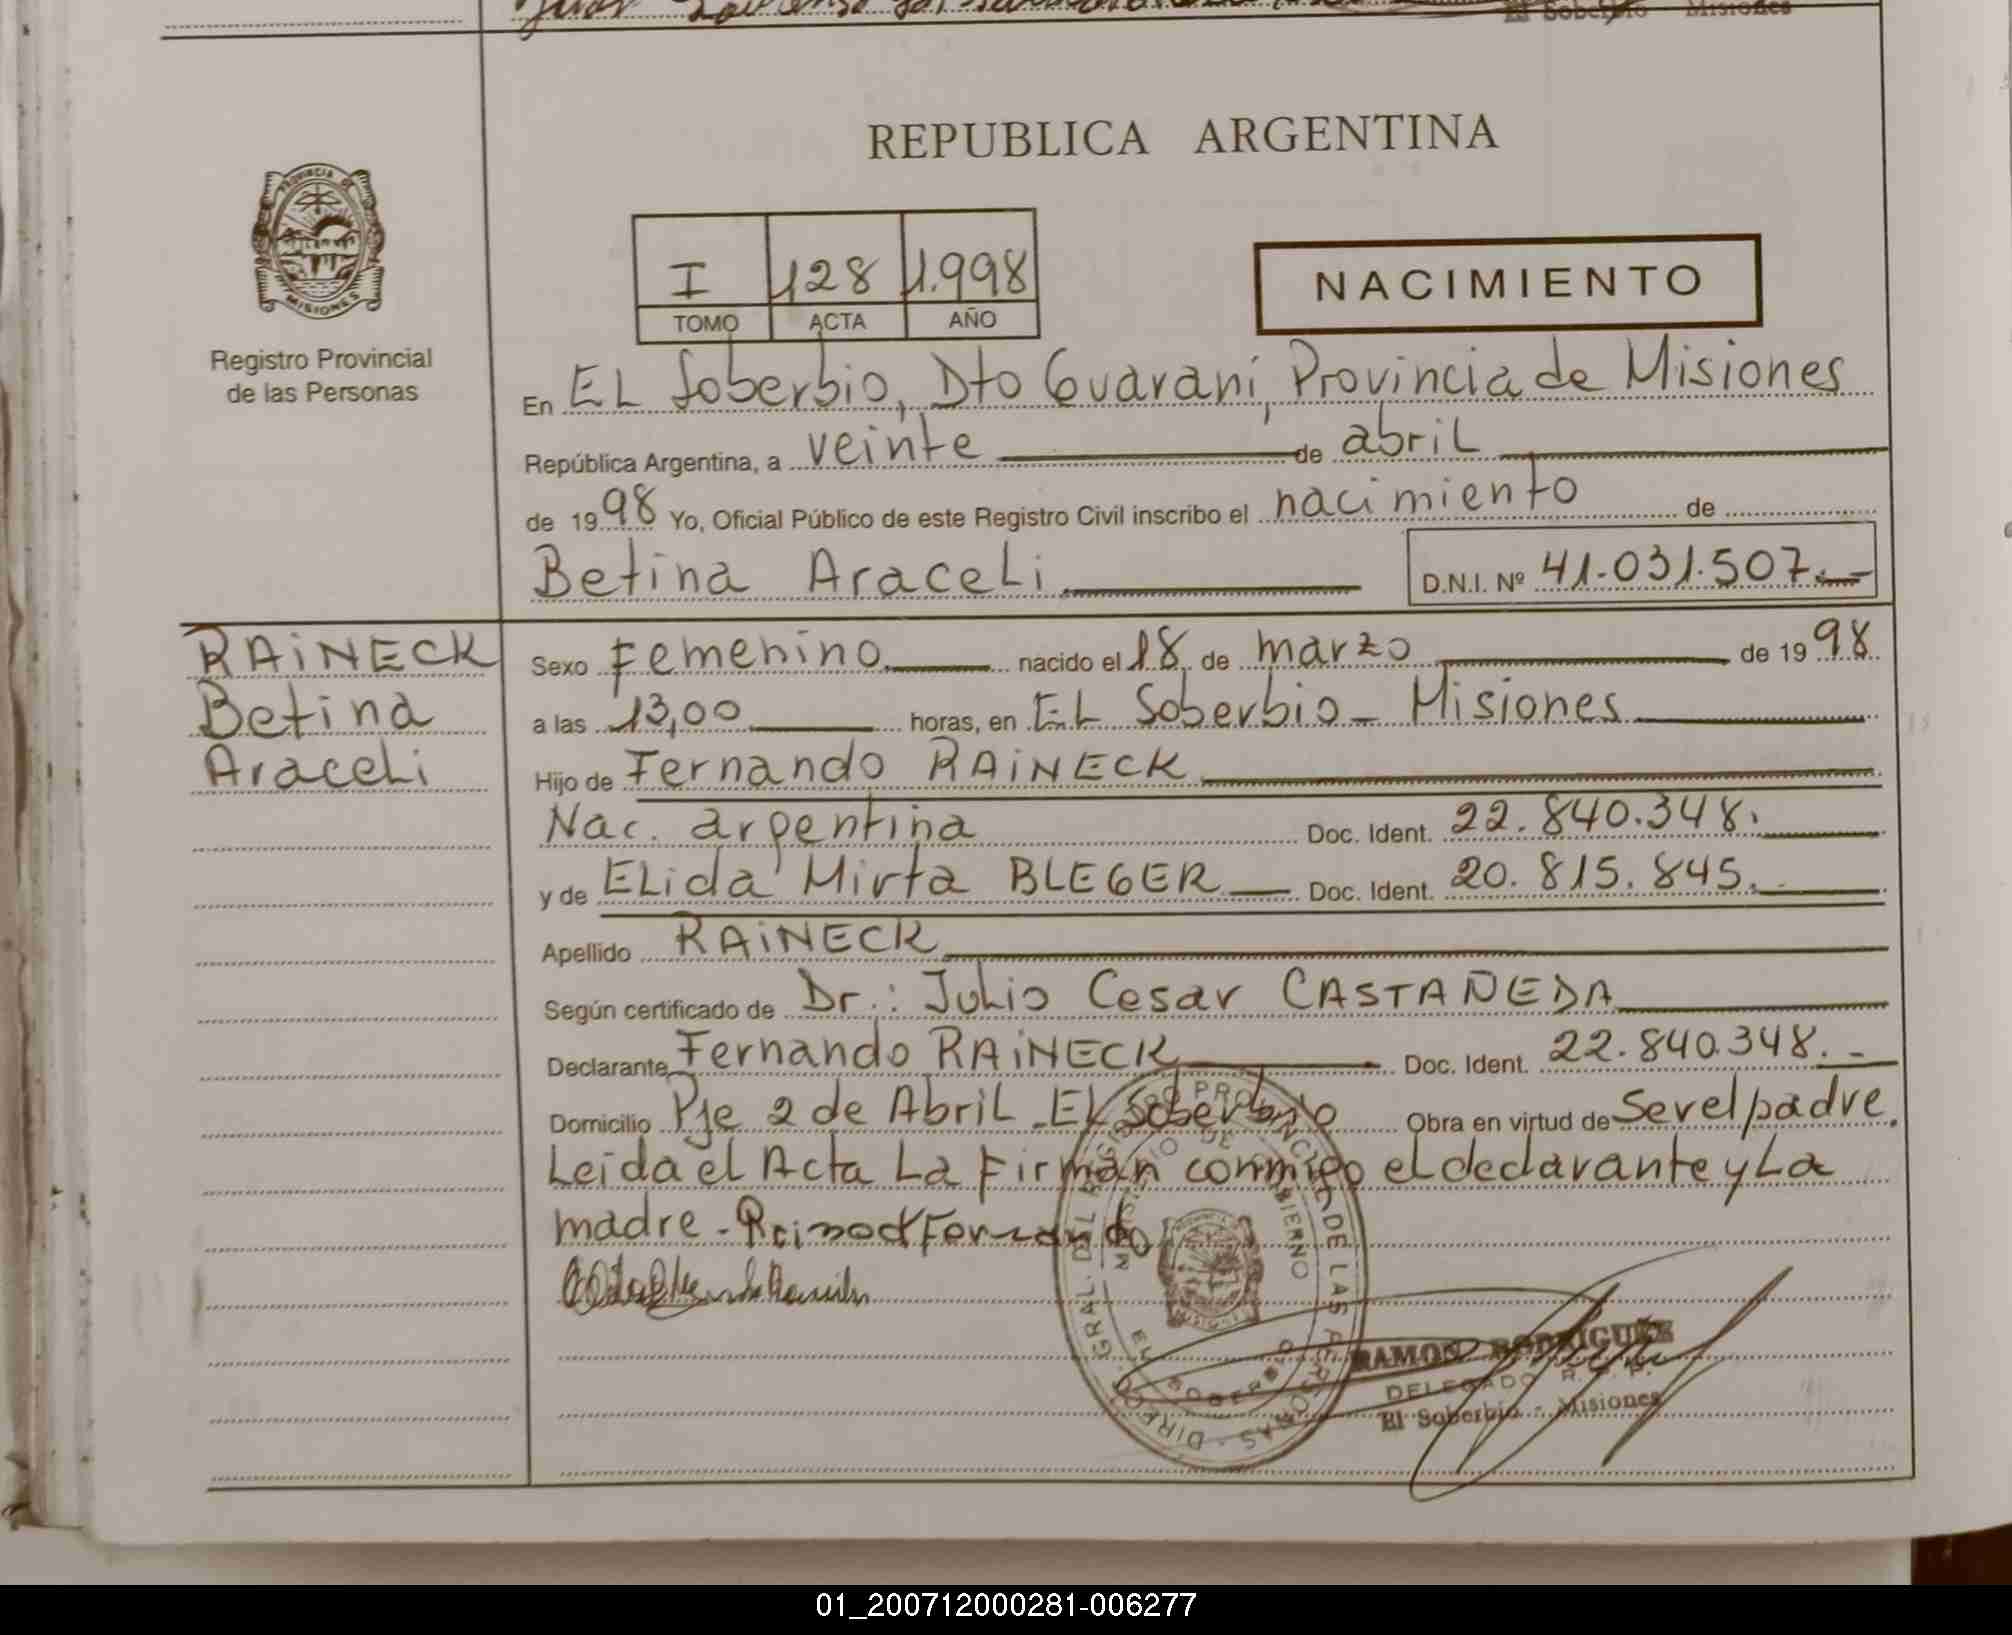 El Soberbio Misiones
REPUBLICA ARGENTINA
PROVINCIA DE
MISIONES
Registro Provincial
de las Personas
I 128 1.998
TOMO ACTA AÑO
NACIMIENTO
En EL Soberbio, Dto Guaraní, Provincia de Misiones
República Argentina, a veinte de abril
de 1998 Yo, Oficial Público de este Registro Civil inscribo el nacimiento de
Betina Araceli D.N.I. Nº 41.031.507.-
RAiNECK
Betina
Araceli
Sexo Femenino nacido el 18 de marzo de 1998
a las 13,00 horas, en EL Soberbio - Misiones
Hijo de Fernando RAiNECK
Nac. argentina Doc. Ident. 22.840.348.
y de ELida Mirta BLEGER Doc. Ident. 20.815.845.
Apellido RAiNECK
Según certificado de Dr.: Julio Cesar CASTAÑEDA
Declarante Fernando RAiNECK Doc. Ident. 22.840.348.-
Domicilio Pje 2 de Abril - El Soberbio Obra en virtud de Ser el padre.
Leida el Acta La Firman conmigo el declarante y La
madre - Fernando
DIREC. GRAL. DEL REGISTRO PROVINCIAL DE LAS PERSONAS
MINISTERIO DE GOBIERNO
EL SOBERBIO
RAMON RODRIGUEZ
DELEGADO R.P.P.
El Soberbio - Misiones
01_200712000281-006277